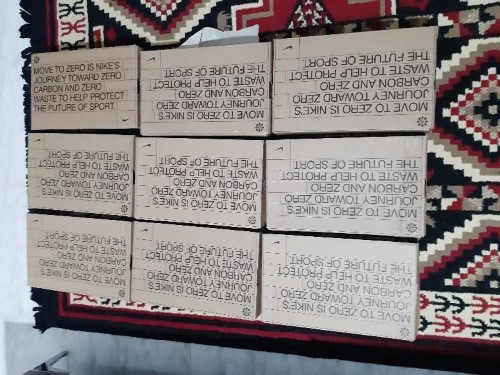 MOVE TO ZERO IS NIKE'S
JOURNEY TOWARD ZERO
CARBON AND ZERO
WASTE TO HELP PROTECT
THE FUTURE OF SPORT.
MOVE TO ZERO IS NIKE'S
JOURNEY TOWARD ZERO
CARBON AND ZERO
WASTE TO HELP PROTECT
THE FUTURE OF SPORT.
MOVE TO ZERO IS NIKE'S
JOURNEY TOWARD ZERO
CARBON AND ZERO
WASTE TO HELP PROTECT
THE FUTURE OF SPORT.
MOVE TO ZERO IS NIKE'S
JOURNEY TOWARD ZERO
CARBON AND ZERO
WASTE TO HELP PROTECT
THE FUTURE OF SPORT.
MOVE TO ZERO IS NIKE'S
JOURNEY TOWARD ZERO
CARBON AND ZERO
WASTE TO HELP PROTECT
THE FUTURE OF SPORT.
MOVE TO ZERO IS NIKE'S
JOURNEY TOWARD ZERO
CARBON AND ZERO
WASTE TO HELP PROTECT
THE FUTURE OF SPORT.
MOVE TO ZERO IS NIKE'S
JOURNEY TOWARD ZERO
CARBON AND ZERO
WASTE TO HELP PROTECT
THE FUTURE OF SPORT.
MOVE TO ZERO IS NIKE'S
JOURNEY TOWARD ZERO
CARBON AND ZERO
WASTE TO HELP PROTECT
THE FUTURE OF SPORT.
MOVE TO ZERO IS NIKE'S
JOURNEY TOWARD ZERO
CARBON AND ZERO
WASTE TO HELP PROTECT
THE FUTURE OF SPORT.